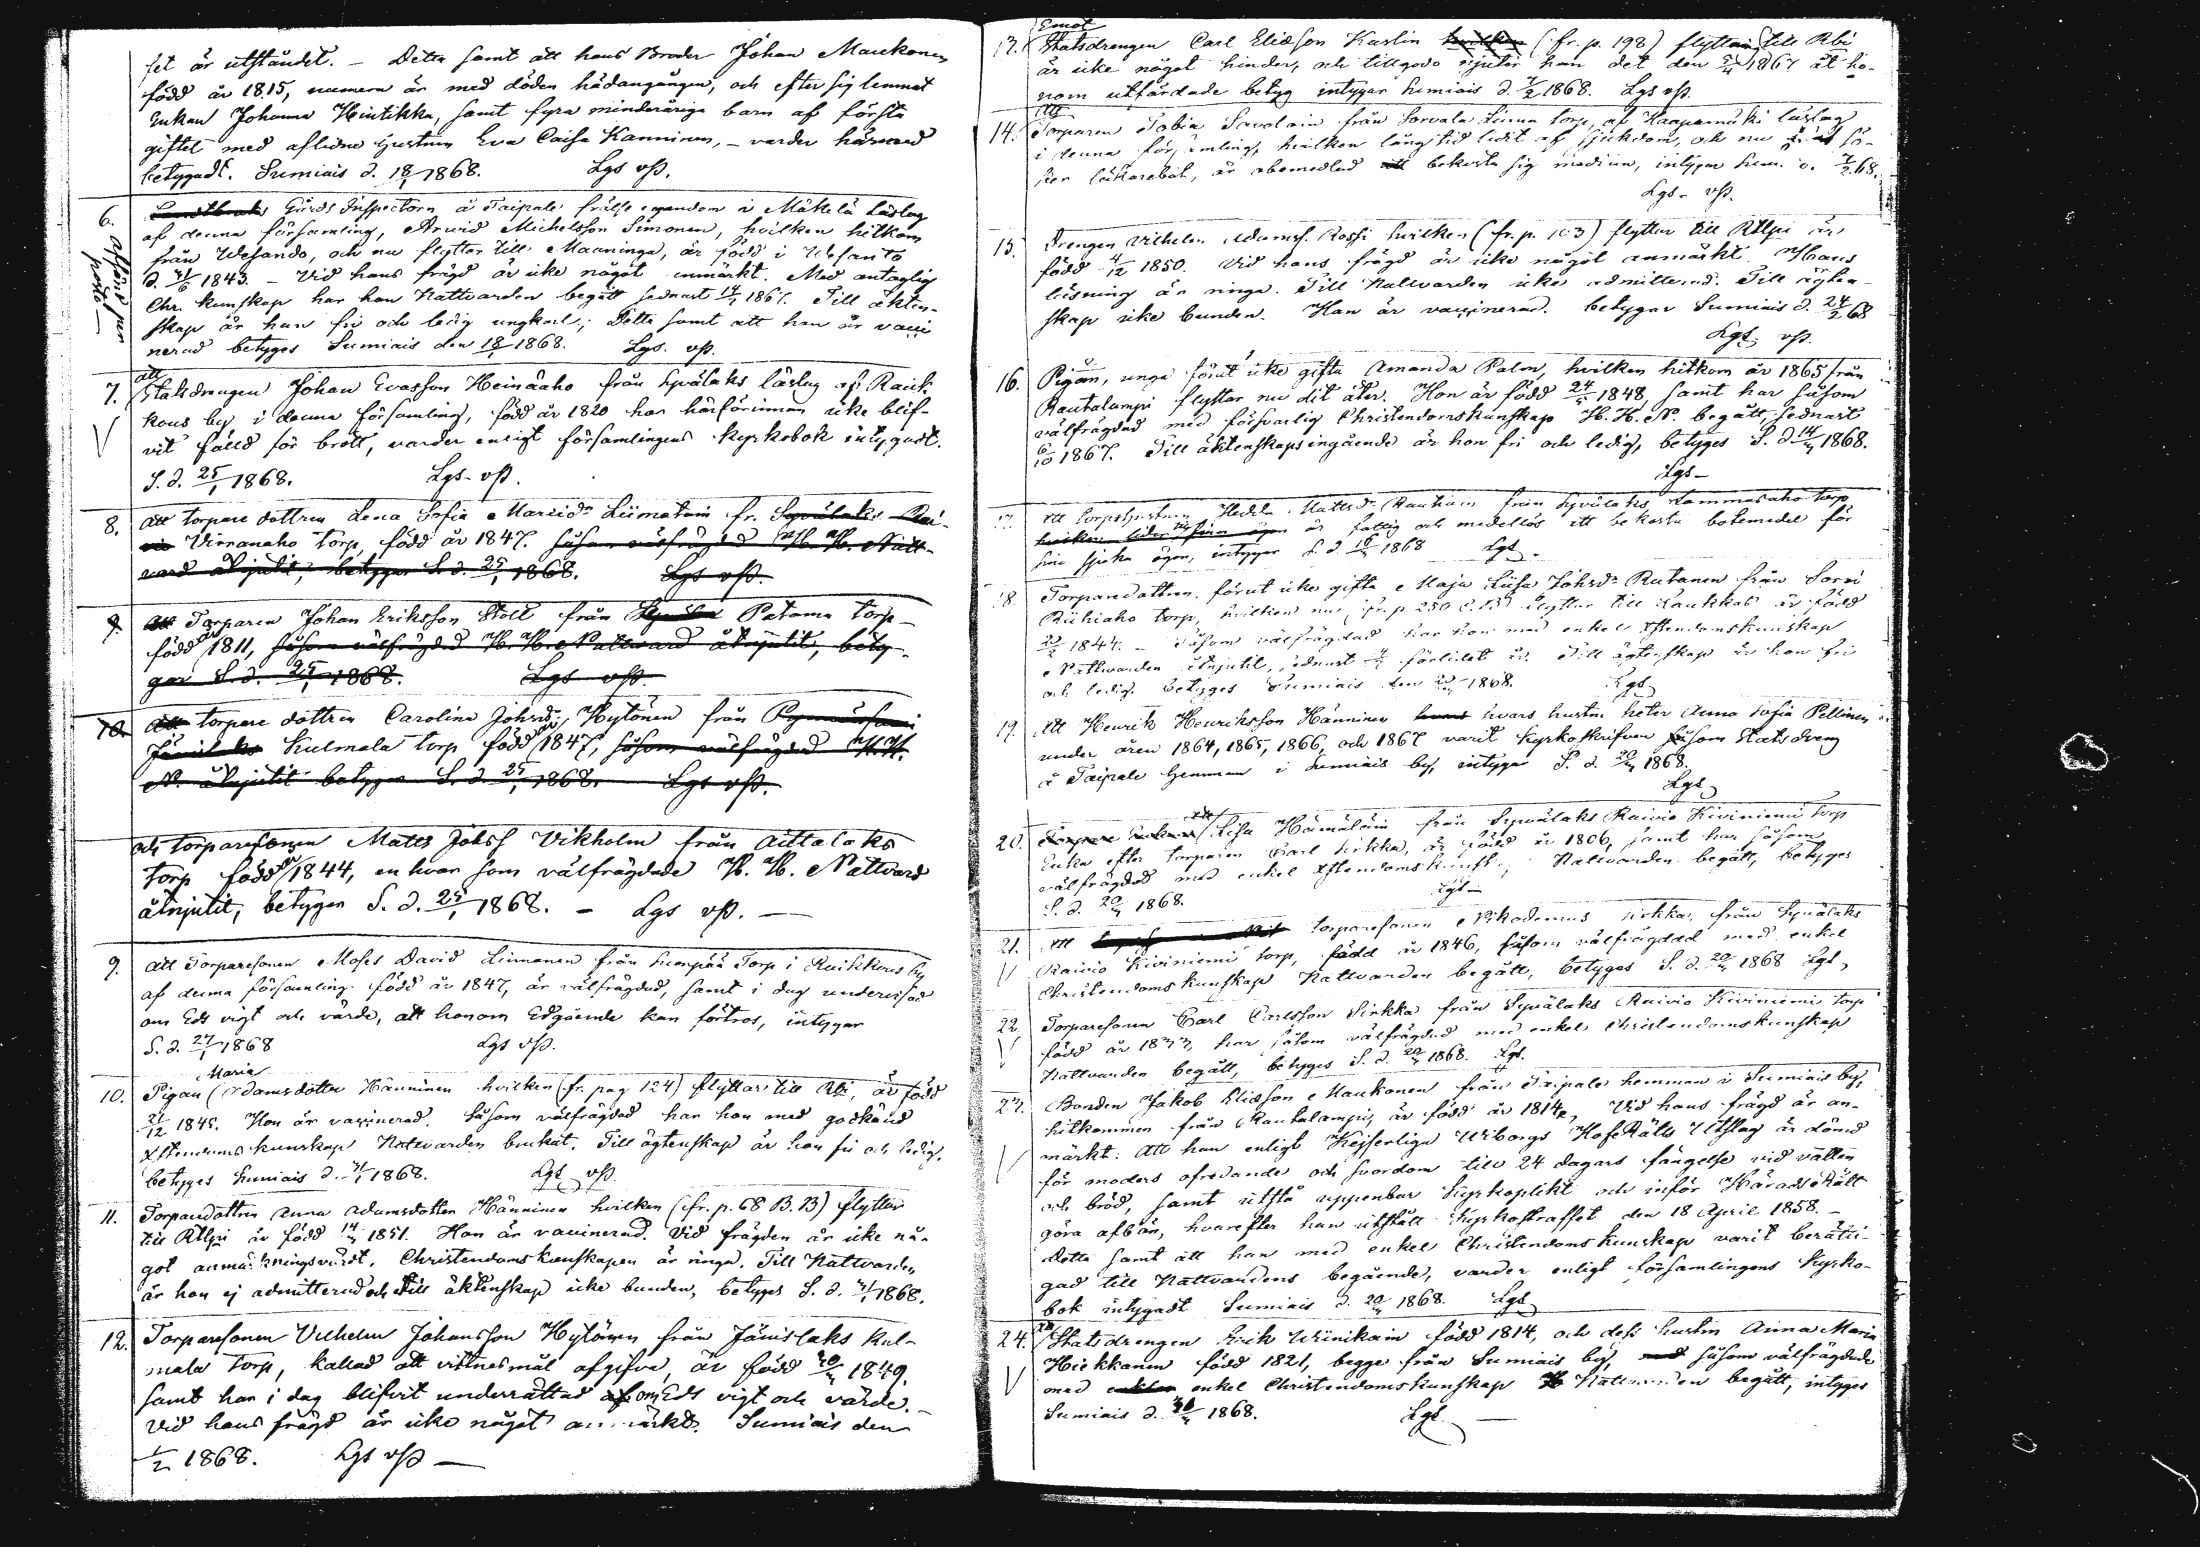 set är utståndet. – Detta samt att hans Broder Johan Maukonen
född år 1815, numera är med döden hädangången, och efter sig lemnat
Enkan Johanna Hintikka, samt fyra minderåriga barn af första
giftet med aflidne Hustrun Eva Caisa Kanninen, – varder härmed
betygadt. Sumiais d. 18/1 1868. Lgs vp.
6. Gårds Inspectorn å Taipale frälse egendom i Mäkelä Läslag
af denna församling, Arwid Michelsson Simonen, hvilken hitkom
från Wesando, och nu flyttar till Maaninga, är född i Wesanto
1843. – Vid hans frägd är icke något anmärkt. Med antaglig
Chr. kunskap har han Nattvarden begått sednast 1867. Till äkten-
skap är han fri och ledig ungkarl; Detta samt att han är vacci
nerad betyges Sumiais den 18/1 1868. Lgs. vp.
7. att Statsdrengen Johan Evasson Heinäaho från Syvälaks läslag af Raik
kous by i denna församling, född år 1820 har härförinnan icke blif-
vit fälld för brott, varder enligt församlingens kyrkobok intygadt.
S. d. 25/1 1868. Lgs. vp.
8. att torpare dottren Lena Sofia Liimatain fr. Syvälaks
Virranaho torp, född år 1847. såsom välfrägdad H. H. Natt-
vard åtnjutit, betyger S. d. 25/1 1868. Lgs vp.
9. att Torparen Johan Eriksson Stoll från Patama torp
född år 1811, såsom välfrägdad H. H. Nattvard åtnjutit, bety-
gar S. d. 25/1 1868. Lgs vp.
10. att torpare dottren Carolina Johsdr Hytönen från
Kulmala torp född år 1847, såsom välfrägdad H. H.
N. åtnjutit betyger S. d. 25/1 1868. Lgs vp.
och torparesonen Matts Johss Vikholm från Aittalaks
torp född år 1844, en hvar som välfrägdade H. H. Nattvard
åtnjutit, betygen S. d. 25/1 1868. – Lgs vp. –
9. att Torparesonen Moses David Linnanen från Torp i Raikkous by
af denna församling född år 1847, är välfrägdad, samt i dag undervisad
om Eds vigt och värde, att honom Edgående kan förtros, intygar
S. d. 27/1 1868 Lgs vp.
10. Pigan Maria Adamsdotter Hänninen hvilken (fr. pag 124) flyttar till Rbi, är född
21/12 1845. Hon är vaxinerad. Såsom välfrägdad har hon med godkänd
Xstendoms kunskap Nattvarden brukat. Till ägtenskap är hon fri och ledig.
betyges Sumiais d. 1868. Lgs vp.
11. Torpardottren Anna Adamsdotter Hänninen hvilken (fr. p. 68 B. B) flyttar
till Rtlpi är född 14 1851. Hon är vaccinerad. Vid frägden är icke nå-
got anmärkningsvärdt. Christendoms kunskapen är ringa. Till Nattvarden
är hon ej admitterad och till äktenskap icke bunden, betyges S. d. 1868.
12. Torparesonen Vilhelm Johansson Hytönen från Jänislaks Kul-
mala torp, kallad att vittnesmål afgifva, är född 1849.
samt har i dag blifvit underrättad om Eds vigt och värde. –
Vid hans frägd är icke något anmärkt. Sumiais den
1/2 1868. Lgs vp –
13. Emot Statsdrengen Carl Eliæson Kuslin (fr. p. 198) flyttning till Rbi
är icke något hinder, och tillgodo njuter han det den 1867 åt ho-
nom utfärdade betyg intygar Sumiais d. 7/2 1868. Lgs vp.
14. att Torparen Tobias Savolain från Sarvala torp, af Haapamäki läslag
i denna församling, hvilken lång tid lidit af sjukdom, och nu sö-
ker läkarebot, är obemedlad att bekosta sig medicin, intygar Sum. d. 7/2 68.
Lgs. vp.
15. Drengen Vilhelm Adamss. Rossi hvilken (fr. p. 103) flyttar till Rtlpi är
född 4/12 1850. Vid hans frägd är icke något anmärkt. Hans
läsning är ringa. Till Nattvarden icke admitterad. Till ägten-
skap icke bunden. Han är vaxxinerad. betygar Sumiais d. 24/2 68
Lgs. vp.
16. Pigan, unga förut icke gifta Amanda Palm, hvilken hitkom år 1865 från
Rautalampi flyttar nu dit åter. Hon är född 24 1848, samt har såsom
välfrägdad med försvarlig Christendomskunskap H. H. N. begått, sednast
6/10 1867. Till äktenskaps ingående är hon fri och ledig, betyges S. d. 14 1868.
Lgs –
17. att torpshustrun Hedda Mattsdr Rautiain från Syvälaks Lammasaho torp
är fattig och medellös att bekosta botemedel för
sina sjuka ögon, intygar S. d. 16 1868 Lgs.
18. Torparedottren förut icke gifta Maja Liisa Johsdr Rutanen från Sorvi
Riihiaho torp, hvilken nu (fr. p. 250) flyttar till Laukkas är född
1844. – Såsom välfrägdad har hon med enkel Xstendomskunskap
Nattvarden åtnjutit, sednast förlidet år. Till ägtenskap är hon fri
och ledig. betyges Sumiais den 1868. Lgs
19. Att Henrik Henriksson Hänninen hvars hustru heter Anna Sofia Pellinen
under åren 1864, 1865, 1866, och 1867 varit kyrkoskrifven såsom Statsdreng
å Taipale Hemman i Sumiais by, intygar S. d. 20 1868.
Lgs
20. att Lisa Hämäläin från Syvälaks Raivio Kiviniemi torp
Enka efter torparen Carl Sirkka, är född år 1806, samt har såsom
välfrägdad med enkel Xstendomskunsk. Nattvarden begått, betyges
S. d. 20 1868. Lgs –
21. Att torparesonen Nikodemus Sirkka från Syvälaks
Raivio Kiviniemi torp, född år 1846, såsom välfrägdad med enkel
Christendoms kunskap Nattvarden begått, betyges S. d. 20 1868 Lgs
22. Torparesonen Carl Carlsson Sirkka från Syvälaks Raivio Kiviniemi torp
född år har såsom välfrägdad med enkel Christendomskunskap
Nattvarden begått, betyges S. d. 20 1868. Lgs.
23. Bonden Jakob Eliæson Maukonen från Taipale hemman i Sumiais by,
hitkommen från Rautalampi, är född år 1814. Vid hans frägd är an-
märkt: Att han enligt Kejserliga Wiborgs HofRätts Utslag är dömd
för moders ofredande och svordom till 24 dagars fängelse vid vatten
och bröd, samt utstå uppenbar kyrkoplikt och inför HäradsRätt
göra afbön, hvarefter han utstått kyrkostraffet den 18 April 1858. –
Detta samt att han med enkel Christendoms kunskap varit berätti-
gad till Nattvardens begående, varder enligt församlingens kyrko-
bok intygadt Sumiais d. 20 1868. Lgs
24. att Statsdrengen Erik Winikain född 1814, och dess hustru Anna Maria
Hiekkanen född 1821, begge från Sumiais by, såsom välfrägdade
med enkel Christendomskunskap Nattvarden begått, intyges
Sumiais d. 1868. Lgs –